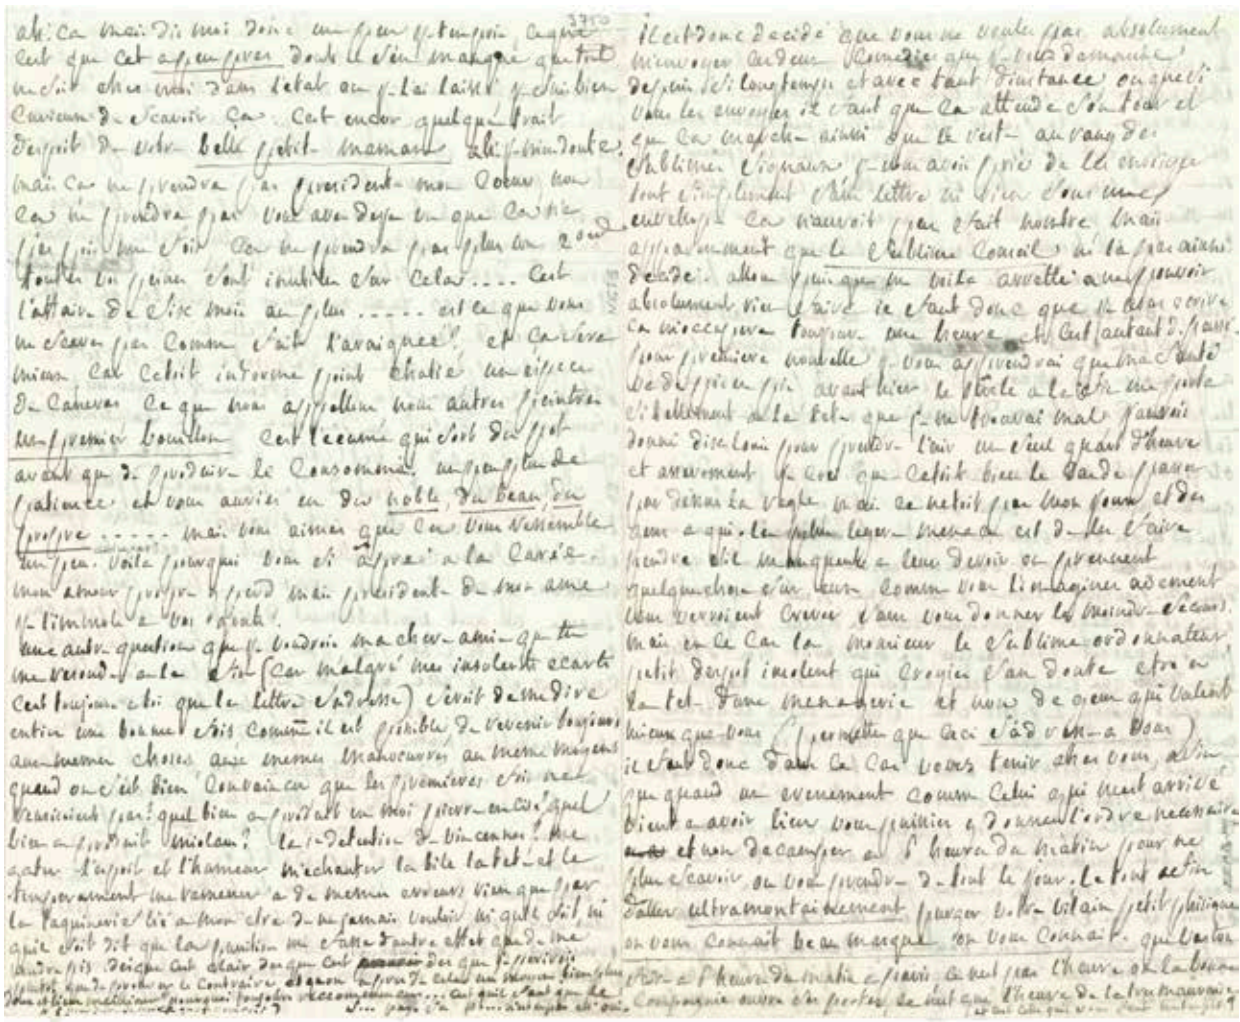 3750
ah ça mais dis moi donc un peu je ten prie, ce que
cest que cet apeupres dont le s'en manque que tout
ne soit chez moi dans l'etat ou je l'ai laissé je suis bien
curieux de scavoir ça. Cest encor quelque trait
d'esprit de votre belle petite maman, ah je m'en doute.
mais ca ne prendra pas presidente mon Coeur non
Ca ne prendra pas vous aves deja vu que Ca n'a
pas pris une fois Ca ne prendra pas plus un 2ond
toutes vos peines sont inutiles sur cela .... Cest
l'affaire de six mois au plus ..... est ce que vous
ne scaves pas comme fait l'araignée? et Ca sera
mieux Car Cetoit informe point chatié une espece
de Canevas Ce que nous appellons nous autres peintres
un premier bouillon Cest l'ecume qui sort du pot
avant que de produire le Consommé. un peu plus de
patience et vous auries eu du noble, du beau, du
propre ..... mais vous aimes que Ca vous ressemble
un peu. Voila pourquoi vous si apre a la Curée
mon amour propre y perd mais presidente de mon ame
je l'immole a vos gouts.
une autre question que je voudrois ma chere amie que tu
me resoud a la fin (Car malgré mes insolents ecarts
Cest toujours a toi que la lettre s'adresse) seroit de me dire
enfin une bonne fois comment il est possible de revenir toujours
aux memes choses aux memes manoeuvres aux memes moyens
quand on s'est bien Convaincu que les premieres fois ne
reussissent pas? quel bien a produit en moi pierre en cise? quel
bien a produit miolans? la 1re detention de vincennes? me
gater l'esprit et l'humeur m'echauffer la bile la tete et le
temperament me ramener a de memes erreurs rien que par
la taquinerie lié a mon etre de ne jamais vouloir ni qu'il soit, ni
qu'il soit dit que la punition me fasse d'autre effet que de me
rendre pis. des que cest clair des que cest des que
il est donc decidé que vous ne voules pas absolument
m'envoyer les deux Comedies que je vous demande
depuis si longtemps et avec tant d'instance ou que si
vous les envoyes il faut que Ca attende son tour et
que Ca marche ainsi que le reste au rang des
Sublimes Signaux je vous avois prié de les envoyer
tout simplement sans lettre ni rien sous une
envelope Ca n'auroit pas fait nombre mais
apparemment que le Sublime Conseil n'a pas ainsi
decidé. allons puisque me voila arretté a ne pouvoir
absolument rien faire il faut donc que je vous ecrive
Ca m'occupera toujours une heure et Cest autant de passé.
pour premiere nouvelle je vous apprendrai que ma Santé
va de pis en pis avant hier le poele a la fin me porta
si tellement a la tete que je me trouvai mal j'aurois
donné dix louis pour prendre l'air un seul quart d'heure
et assurement je crois que Cetoit bien le Cas de passer
par dessus la regle mais ce n'etoit pas mon jour et des
gens a qui la plus legere menace est de les faire
pendre s'ils manquent a leur devoir ou prennent
quelque chose sur eux comme vous l'imagines aisement
vous verroient Crever sans vous donner le moindre secours.
mais en ce Cas la monsieur le Sublime ordonnateur
petit despot insolent qui Croyes sans doute etre a
la tete d'une menagerie et non de gens qui valent
mieux que vous (permettes que ceci s'adresse a vous)
il faut donc dans Ce Cas vous tenir ches vous, afin
que quand un evenement comme Celui qui m'est arrivé
vient a avoir lieu vous puissies y donner l'ordre necessaire
et non decamper a 5 heures du matin pour ne
plus scavoir ou vous prendre de tout le jour. Le tout afin
d'aller ultramontainement purger votre vilain petit phisique
on vous Connait beau masque on vous Connait.
a 5 heures du matin a paris ce n'est pas l'heure ou la bonne
Compagnie ouvre ses portes, ce n'est que l'heure de la tres mauvaise